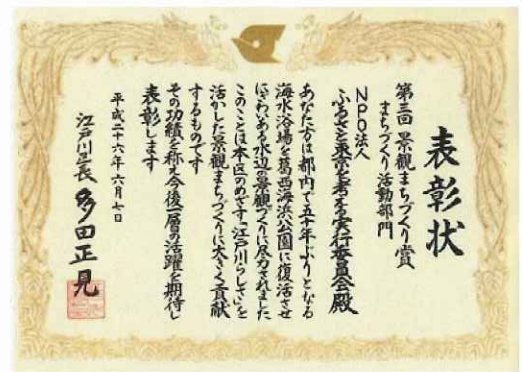 表彰状
第三回 景観まちづくり賞
まちづくり活動部門
NPO法人
ふるさと東京を考える実行委員会殿
あなた方は都内で五十年ぶりとなる
海水浴場を葛西海浜公園に復活させ
にぎわいある水辺の景観づくりに尽力されました
このことは本区のめざす「江戸川らしさ」を
活かした景観まちづくりに大きく貢献
するものです
その功績を称え今後一層の活躍を期待し
表彰します
平成二十六年六月七日
江戸川区長 多田正見